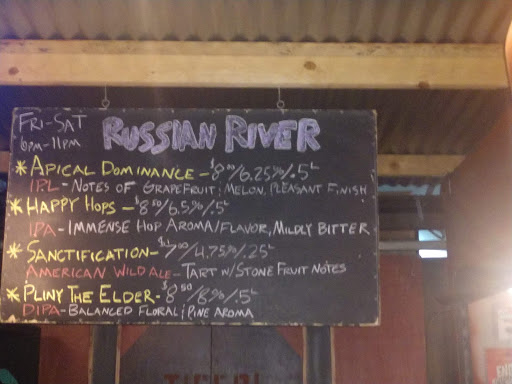 FRI-SAT
6PM-11PM
RUSSIAN RIVER
* APICAL DOMINANCE - $8.00/6.25%/.5L
IPL - NOTES OF GRAPEFRUIT; MELON, PLEASANT FINISH
* HAPPY HOPS - $8.50/6.5%/.5L
IPA - IMMENSE HOP AROMA/FLAVOR, MILDLY BITTER
* SANCTIFICATION - $7.00/4.75%/.25L
AMERICAN WILD ALE - TART W/STONE FRUIT NOTES
* PLINY THE ELDER - $8.50/8%/.5L
DIPA - BALANCED FLORAL; PINE AROMA